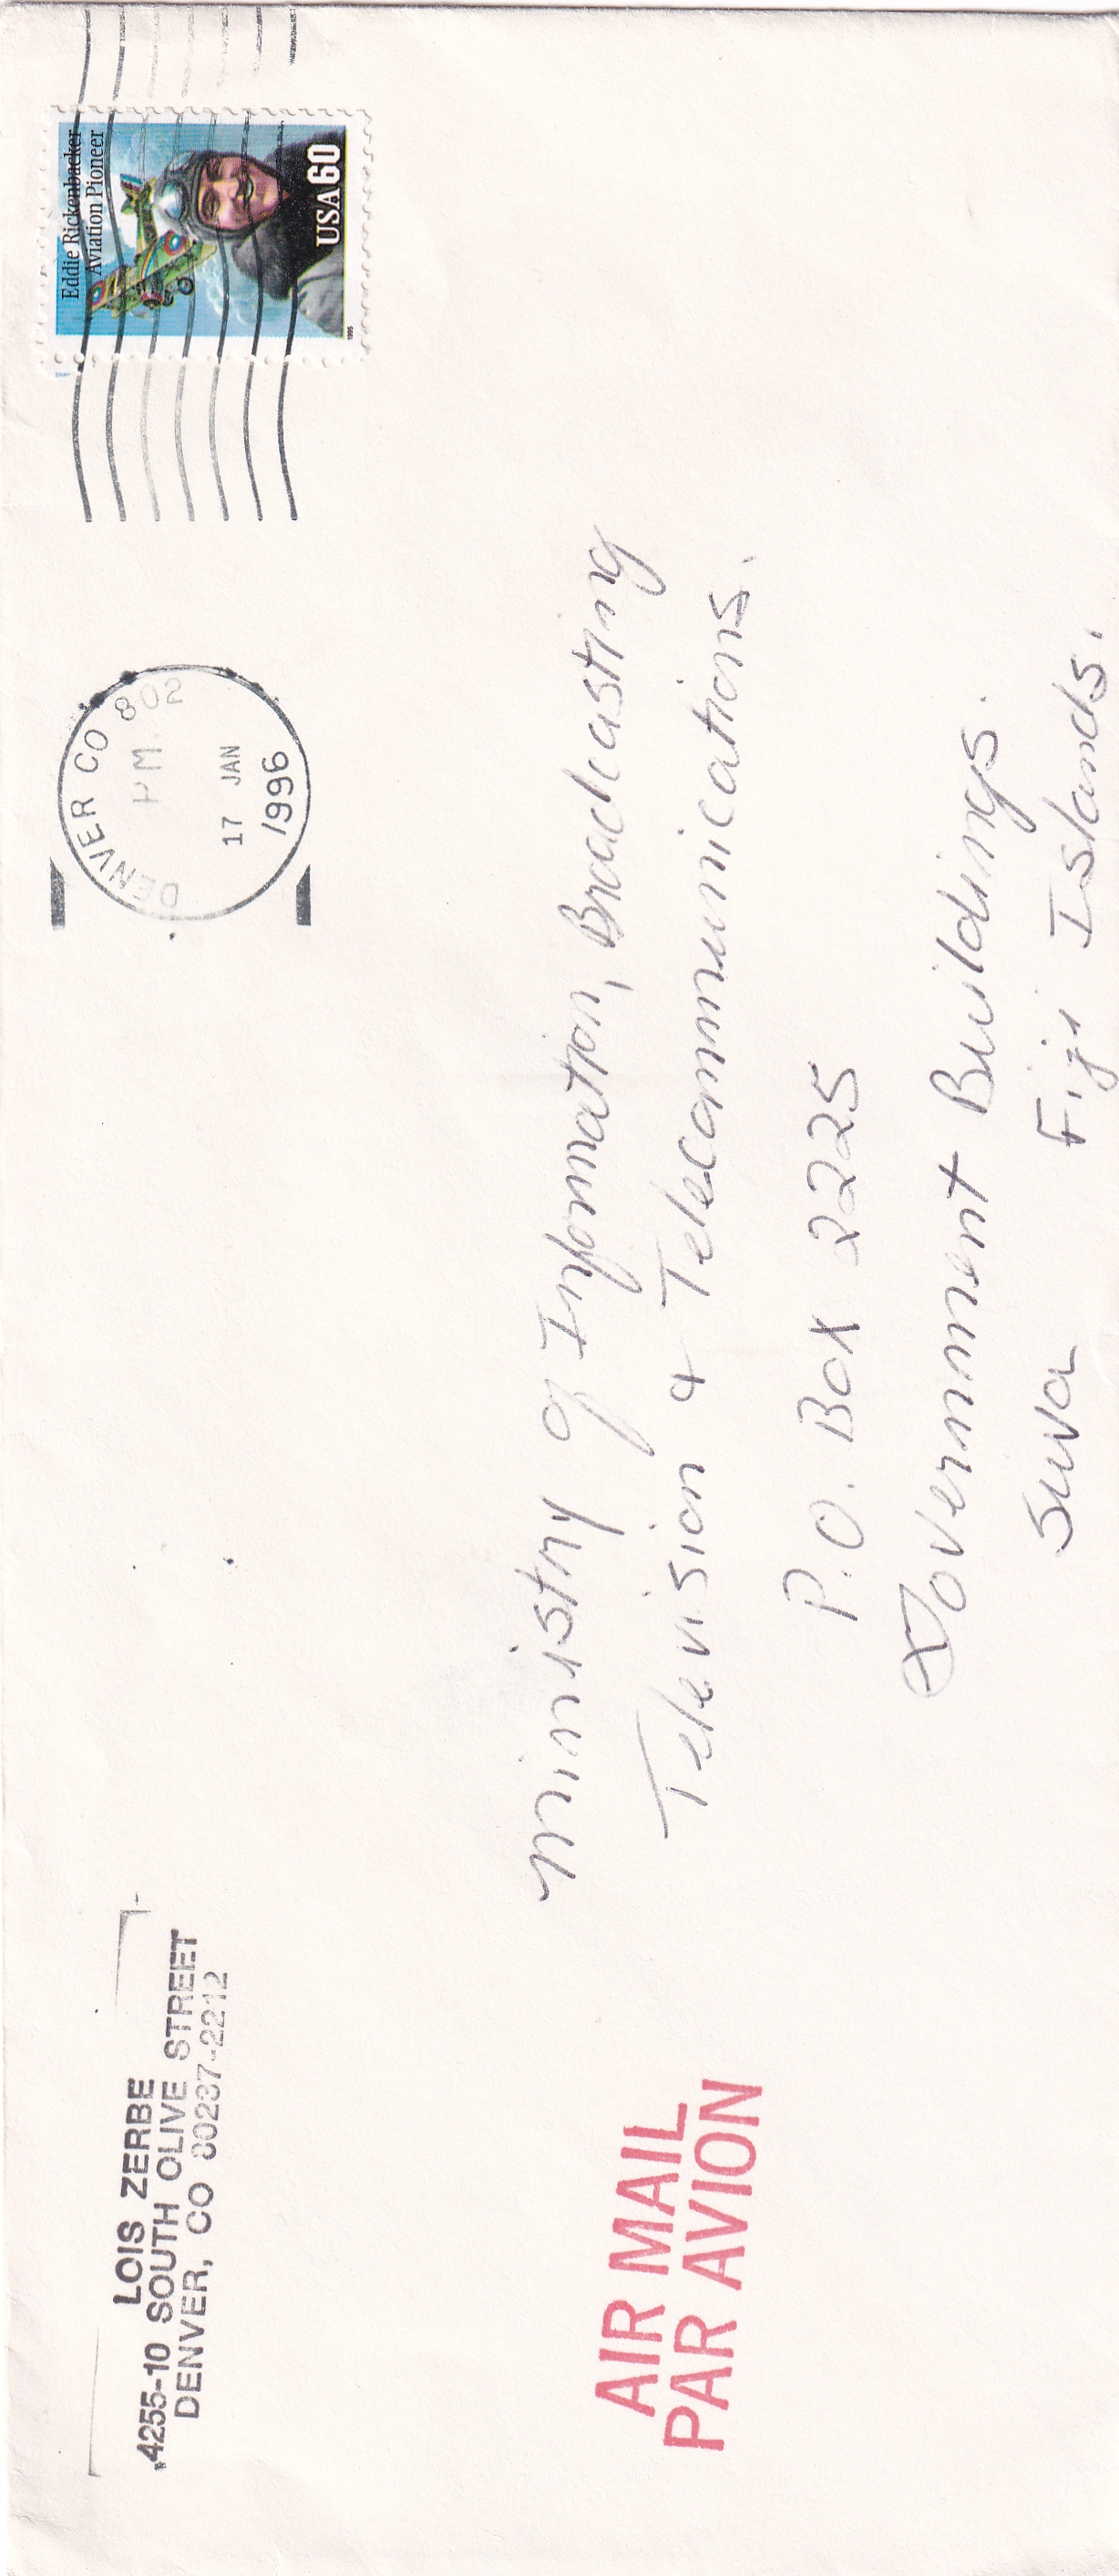 LOIS ZERBE
4255-10 SOUTH OLIVE STREET
DENVER, CO 80237-2212
DENVER CO 802
PM
17 JAN
1996
Eddie Rickenbacker
Aviation Pioneer
USA 60
1995
Ministry of Information, Broadcasting
Television & Telecommunications.
P.O. Box 2225
Government Buildings.
Suva Fiji Islands.
AIR MAIL
PAR AVION